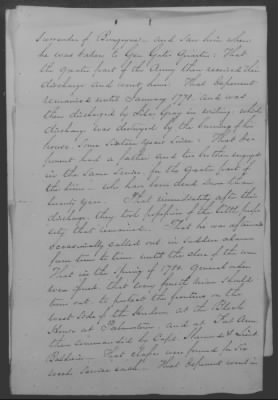 Surrender of Burgoyne and Saw him when
he was taken to Gen Gates Quarters: That
the greater part of the Army then received their
discharge and went home. That deponent
remained until January 1778. and was
then discharged by Lieu Gray in writing. which
discharge was destroyed by the burning of his
house. Some Sixteen Years Since. That De-
ponent had a father and his brother engaged
in the Same Service for the Greater part of
the time - who have been dead Some
twenty Years. That immediately after the
discharge, they took possession of the little prop-
erty that remained. That he was afterwards
occasionally called out in Sudden alarms
from time to time until the close of the war
That in the Spring of 1780. General orders
were that every fourth man Should
turn out to protect the frontiers on the
West Side of the Hudson at the Block
House at Palmertown, and at Fort Ann,
then commanded by Capt. and Lieut
That Classes were formed for Six
weeks Service each. That deponent went in